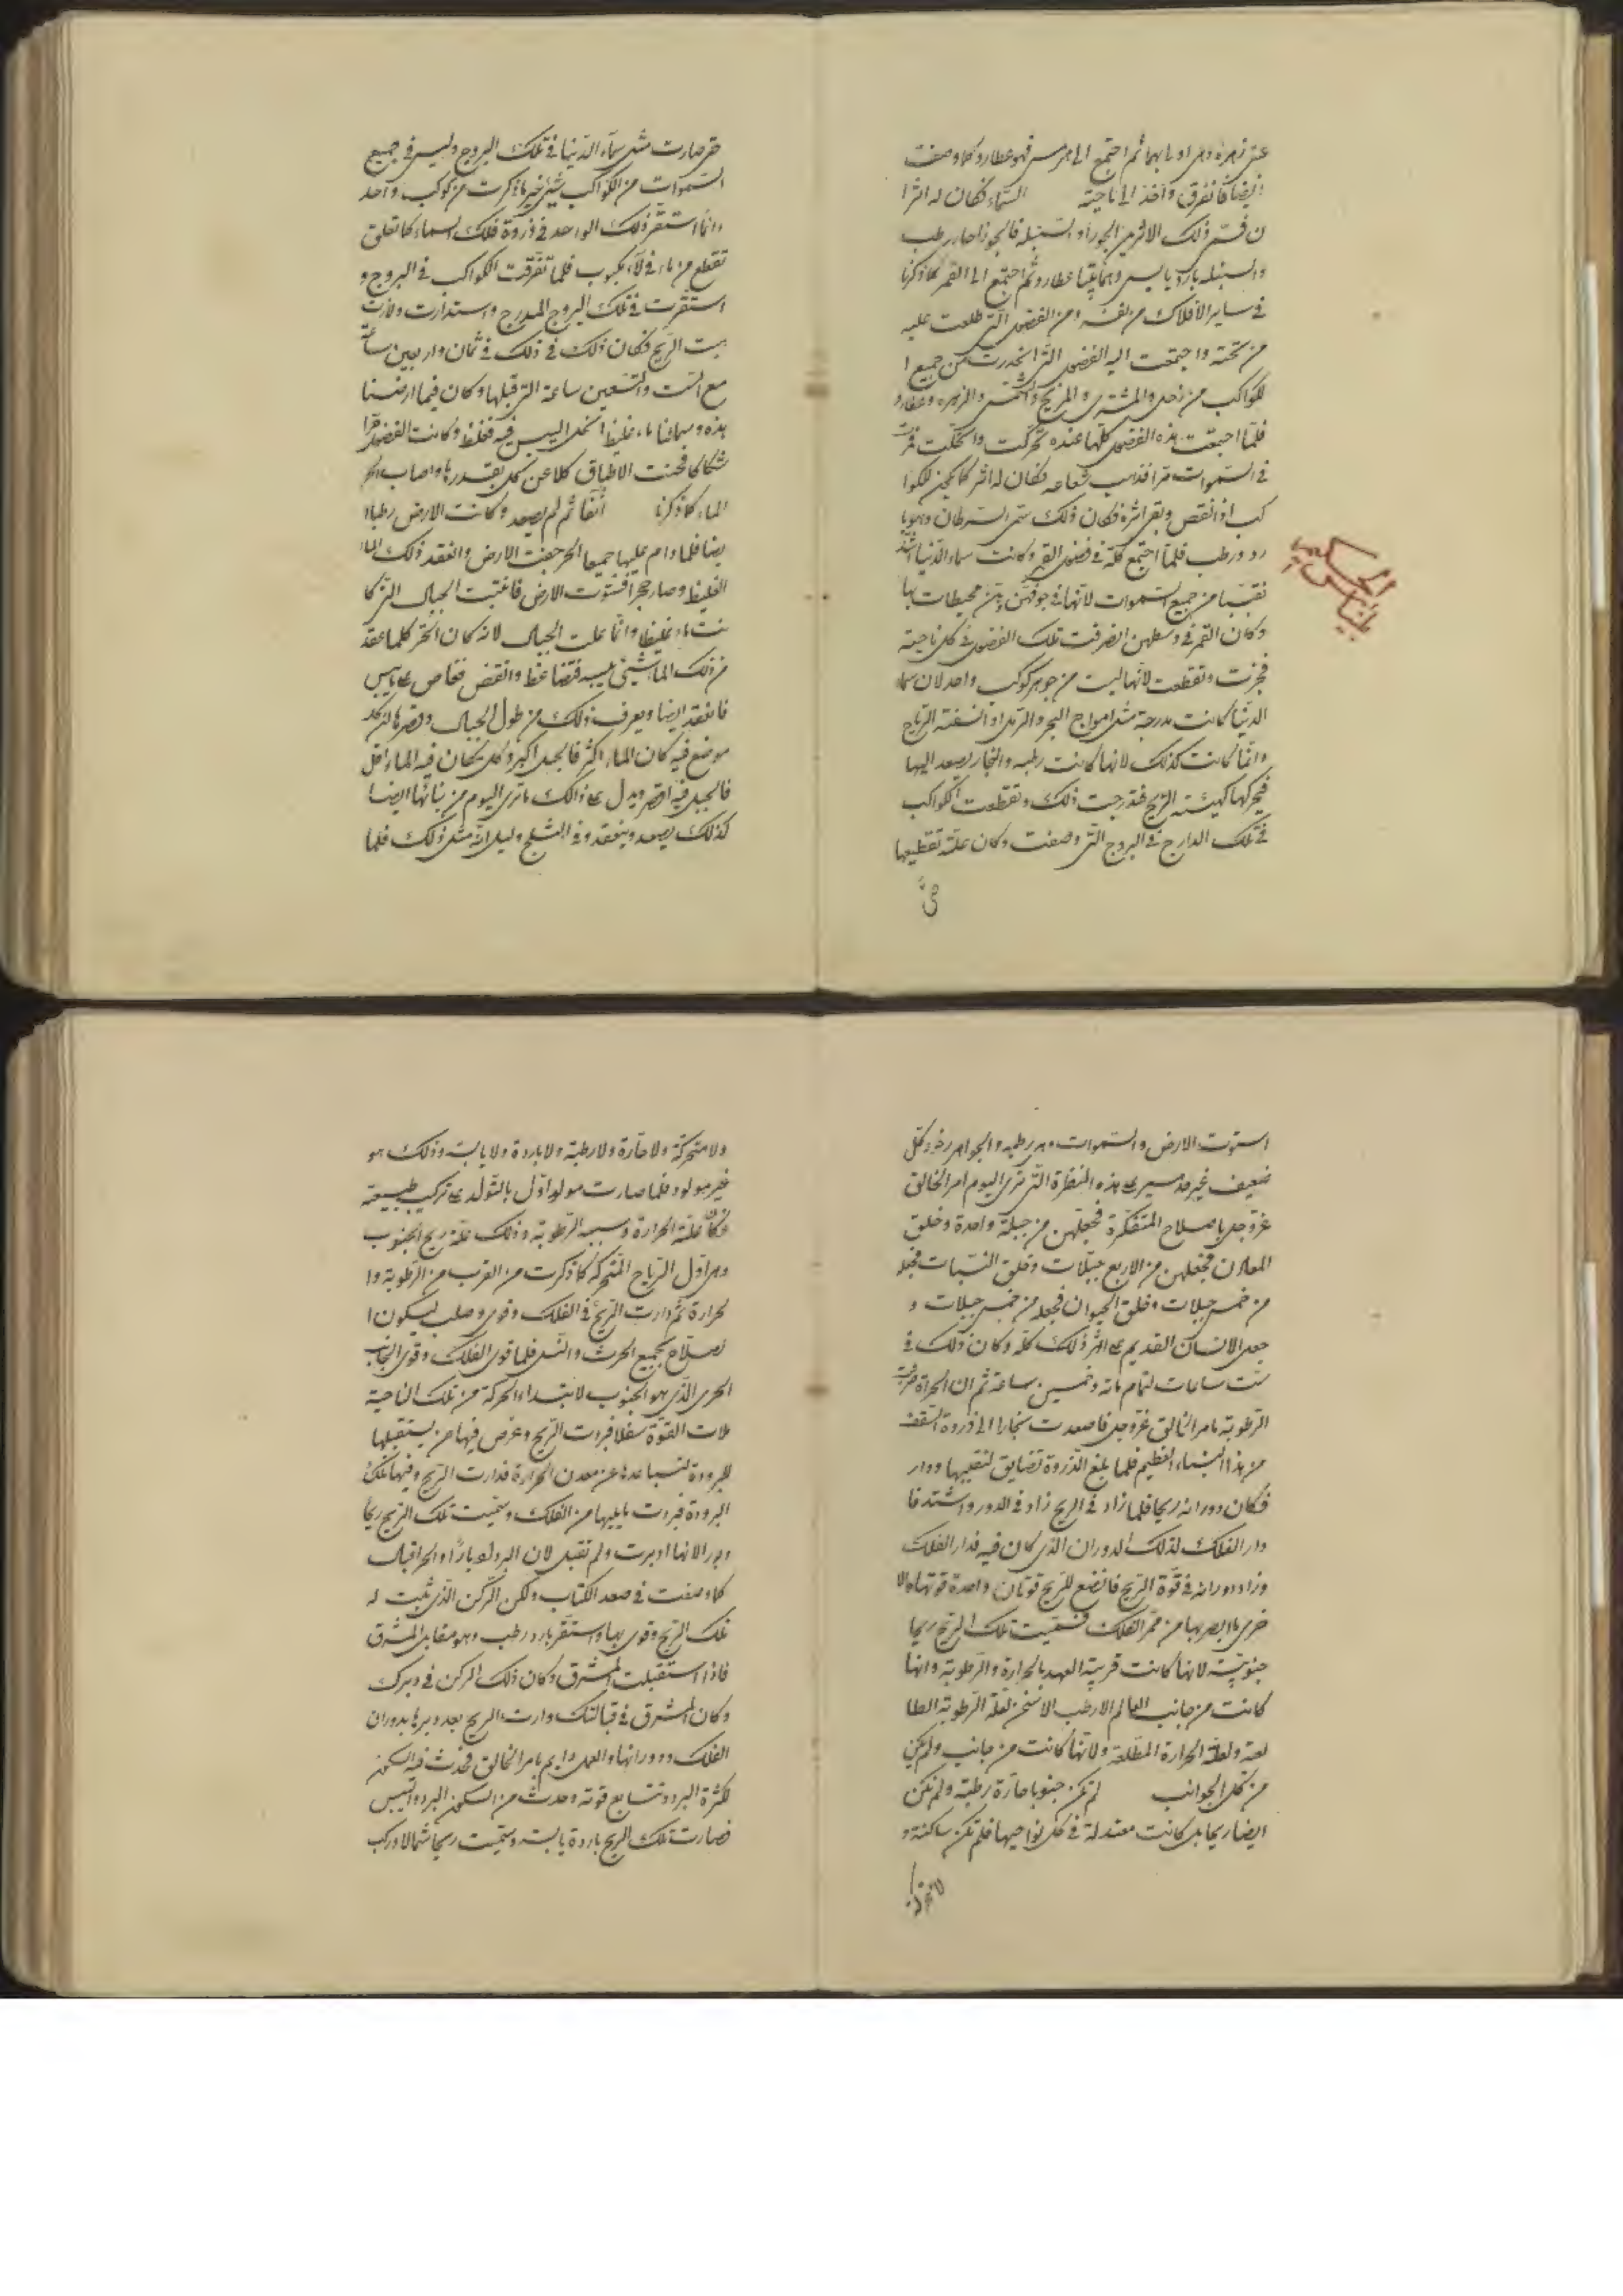 عن زهرة وهى اولى بهما ثم اجتمع الى هرمس فهو عطارد كما وصفت
ايضا فانفرق واخذ الى ناحية السماء فكان له اثرا
ن فسمى ذلك الاثرين الجوزا والسنبله فالجوزا حار رطب
والسنبله بارد يابس وهما بيتا عطارد ثم اجتمع الى القمر كما ذكرنا
فى ساير الافلاك من نفسه ومن الفضول التى طلعت عليه
من تحته واجتمعت اليه الفضول التى انحدرت من جميع ا
لكواكب من زحل والمشترى والمريخ والشمس والزهره وعطارد
فلما اجتمعت هذه الفضول كلها عنده تحركت وانحلت
فى السموات فذهب شعاعه فكان له اثر كما يكون للكوا
كب اذا انقص وبقى اثره فكان ذلك سمى السرطان وهو با
رد ورطب فلما اجتمع كله فى فضول القمر وكانت سماء الدنيا اشد
نقببا من جميع السموات لانها فى جوفهن وهن محيطات بها
وكان القمر فى وسطهن انصرفت تلك الفضول فى كل ناحية
فجزت وتقطعت لانها ليست من جوهر كوكب واحد لان سما
الدنيا كانت مدرجة مثل امواج البحر والرمل اذا نسفته الرياح
وانما كانت كذلك لانها كانت رطبه والبخار يصعد اليها
فيحركها كهيئة الريح فتدرجت ذلك وتقطعت الكواكب
فى تلك المدارج فى البروج التى وصفت وكان علة تقطيعها
حتى
حتى صارت مثل سماء الدنيا فى تلك البروج وليس فى جميع
السموات من الكواكب شيئ غير ما ذكرت من كوكب واحد
وانما استقر ذلك الواحد فى ذروة فلك السماء كما تعلق
تقطع من ماء فى لاء مكبوب فلما تفرقت الكواكب فى البروج و
استقرت فى تلك البروج المدرج واستدارت ولارت
هبت الريح فكان ذلك فى ذلك فى ثمان واربعين ساعة
مع الست والتسعين ساعة التى قبلها وكان فيما ارضنا
هذه وسمائنا ماء غليظ انحل اليبس فيه فغلظ وكانت الفضول
شكا كا فحنت الاطباق كلا عن كل بقدرها واصاب الحر
الماء كما ذكرنا آنفا ثم لم يصعد وكانت الارض رطبا ا
يضا فلما دام عليها جميعا الحر جفت الارض وانعقد ذلك الما
الغليظ وصار حجرا فستوت الارض فانبتت الجبال التى كا
نت ماء غليظا وانما علت الجبال لانه كان الحر كلما عقد
من ذلك الما شيئ يبسه فتضاغط وانقض فغاص على يابس
فانعقد ايضا ويعرف ذلك من طول الجبال وقصرها لان كل
موضع فيه كان الماء اكثر فالجبل اكبر وكل مكان فيه الماء اقل
فالجبل فيه اقصر ويدل على ذالك ما ترى اليوم من نباتها ايضا
كذلك يصعد وينعقد وفى الثلج دليل انه مثل ذلك فلما
استوت الارض والسموات وهى رطبه والجواهر رخوة كل
ضعيف غير مدسير على هذه المنظرة التى ترى اليوم امر الخالق
عز وجل باصلاح المتفكرة فجعلهن من جبلة واحدة وخلق
المعادن فجعلهن من الاربع جبلات وخلق النبات فجعله
من خمس جبلات وخلق الحيوان فجعله من خمس جبلات و
جعل الانسان القديم على اثر ذلك كله وكان ذلك فى
ست ساعات لتمام مائة وخمسين ساعة ثم ان الحرارة ضربت
الرطوبة بامر الخالق عز وجل فاصعدت بخارا الى ذروة السقف
من هذا البناء العظيم فلما بلغ الذروة تضايق لتقبيها ودار
فكان دورانه ريحا فلما زاد فى الريح زاد فى الدور واشتد فا
دار الفلك لذلك الدوران الذى كان فيه فدار الفلك
وزاد دورانه فى قوة الريح فاتضع للريح قوتان واحدة قوتها والا
خرى ما ابصر بها من ممر الفلك فسميت تلك الريح ريحا
جنوبية لانها كانت قريبة العهد بالحرارة والرطوبة وانها
كانت من جانب العالم الارطب الاسخن لعلة الرطوبة الطا
لعة ولعلة الحرارة المطلعة ولانها كانت من جانب ولم يكن
من كل الجوانب لم تكن جنوبا حارة رطبة ولم تكن
ايضا ريحا بل كانت معتدلة فى كل نواحيها فلم تكن ساكنة و
لا متحركة
ولا متحركة ولا حارة ولا رطبة ولا باردة ولا يابسة وذلك هو
غير مولود فلما صارت مولودا اول بالتولد على تركيب طبيعته
فكان علته الحرارة وسببه الرطوبة وذلك علة ريح الجنوب
وهى اول الرياح المتحركة كما ذكرت من القرب من الرطوبة وا
لحرارة ثم دارت الريح فى الفلك وقوى وصلب ليكون ا
لصلاح بجميع الحرث والنسل فلما قوى الفلك وقوى الجانب
الحرى الذى هو الجنوب لابتداء الحركة من تلك الناحية
علات القوة سفلا فبردت الريح وعرض فيها من يستقبلها
للبرودة لتباعدها عن معدن الحرارة فدارت الريح وفيها تلك
البرودة فبردت ما يليها من الفلك وسميت تلك الريح ريحا
دبورا لانها ادبرت ولم تقبل لان البرد ادبارا والحر اقبال
كما وصفت فى صدر الكتاب ولكن الركن الذى تثبت له
تلك الريح وقوى بها واستقر بارد رطب وهو مقابل المشرق
فاذا استقبلت المشرق وكان ذلك الركن فى دبرك
وكان المشرق فى قبالتك دارت الريح بعد دبرها بدوران
الفلك ودورانها والعمل دايم بامر الخالق فحدث فيه السكون
لكثرة البرد وتتابع قوته وحدث من السكون البرد واليبس
فصارت تلك الريح باردة يابسة وسميت ريحا شمالا وركب